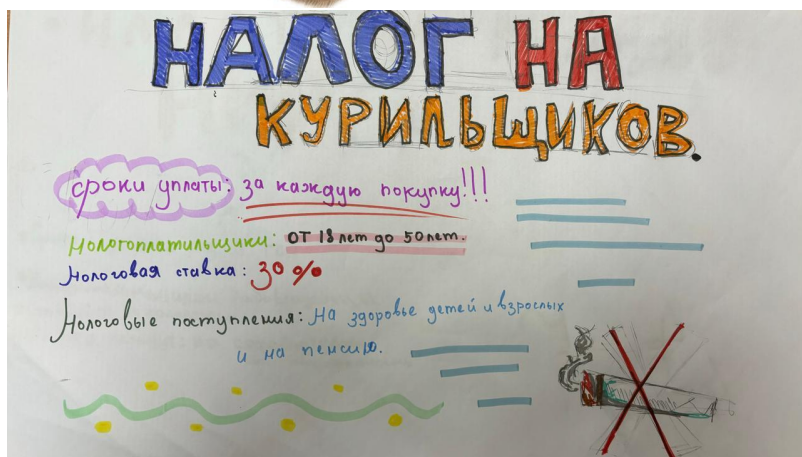 НАЛОГ НА
КУРИЛЬЩИКОВ.
сроки уплаты: за каждую покупку!!!
Нологоплатильщики: от 18 лет до 50 лет.
Нологовая ставка: 30%
Нологовые поступления: На здоровье детей и взрослых
и на пенсию.